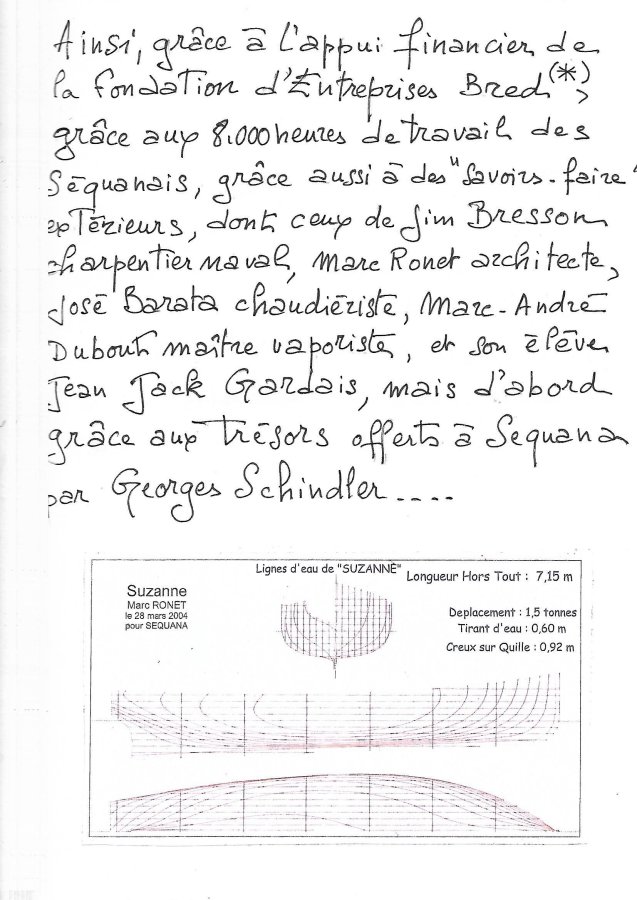 Ainsi, grâce à l'appui financier de
la fondation d'Entreprises Bred (*),
grâce aux 8.000 heures de travail des
Séquanais, grâce aussi à des "Savoirs-faire"
extérieurs, dont ceux de Jim Bresson
charpentier naval, Marc Ronet architecte,
José Barata chaudiériste, Marc-André
Dubout maître vaporiste, et son élève
Jean Jack Gardais, mais d'abord
grâce aux trésors offerts à Sequana
par Georges Schindler....
Lignes d'eau de "SUZANNE"
Longueur Hors Tout : 7,15 m
Suzanne
Marc RONET
le 28 mars 2004
pour SEQUANA
Deplacement : 1,5 tonnes
Tirant d'eau : 0,60 m
Creux sur Quille : 0,92 m